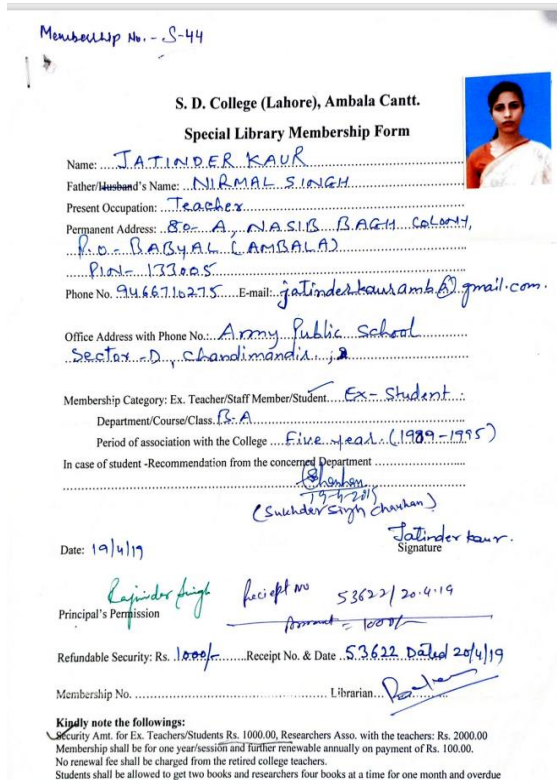 Membership No. - S-44
S. D. College (Lahore), Ambala Cantt.
Special Library Membership Form
Name: JATINDER KAUR
Father/Husband's Name: NIRMAL SINGH
Present Occupation: Teacher
Permanent Address: 80-A, NASIB BAGH COLONY,
P.O- BABYAL (AMBALA)
PIN- 133005
Phone No. 9466710275 E-mail: jatinderkauramb@gmail.com.
Office Address with Phone No.: Army Public School
Sector-D, Chandimandir
Membership Category: Ex. Teacher/Staff Member/Student Ex-Student
Department/Course/Class. B.A
Period of association with the College Five year (1989-1995)
In case of student -Recommendation from the concerned Department
Chauhan
(Sukhdev Singh Chauhan)
Jatinder kaur.
Date: 19/4/19 Signature
Rajinder Singh Reciept No 53622/20.4.19
Principal's Permission Amount = 1000/-
Refundable Security: Rs. 1000/- Receipt No. & Date 53622 Dated 20/4/19
Membership No. Librarian
Kindly note the followings:
Security Amt. for Ex. Teachers/Students Rs. 1000.00, Researchers Asso. with the teachers: Rs. 2000.00
Membership shall be for one year/session and further renewable annually on payment of Rs. 100.00.
No renewal fee shall be charged from the retired college teachers.
Students shall be allowed to get two books and researchers four books at a time for one month and overdue